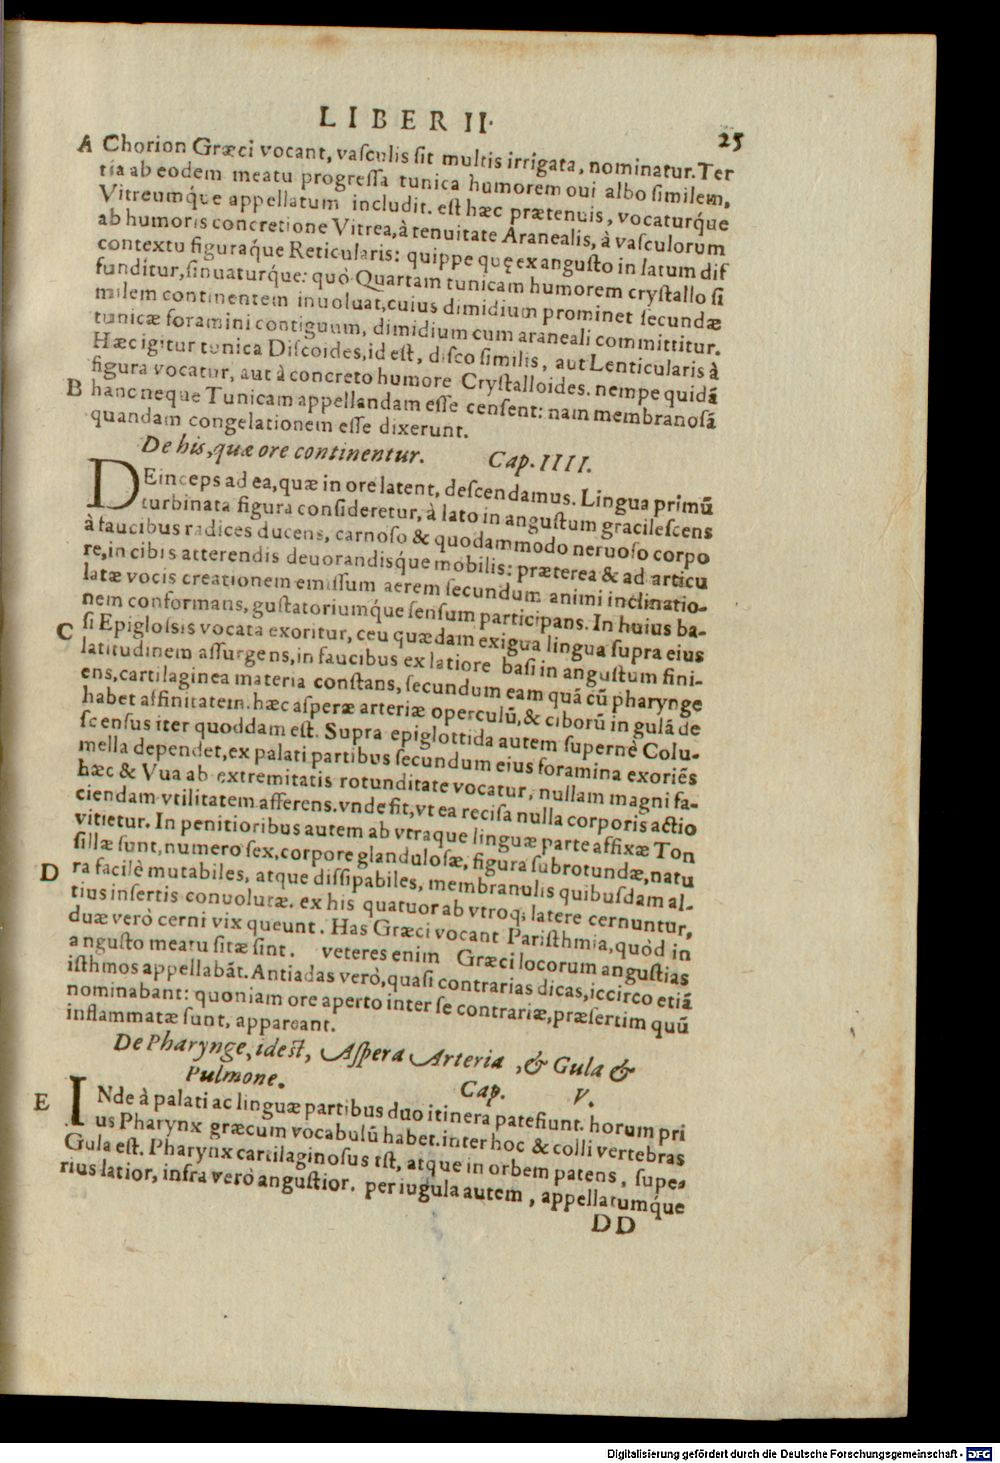 LIBER II.
25
A Chorion Græci vocant, vaſculis ſit multis irrigata, nominatur. Ter
tia ab eodem meatu progreſſa tunica humorem oui albo ſimilem,
Vitreumq́ue appellatum includit. eſt hæc prætenuis, vocaturq́ue
ab humoris concretione Vitrea, à tenuitate Aranealis, à vaſculorum
contextu figuraq́ue Reticularis: quippe quę ex anguſto in latum dif
funditur, ſinuaturq́ue: quò Quartam tunicam humorem cryſtallo ſi
milem continentem inuoluat, cuius dimidium prominet ſecundæ
tunicæ foramini contiguum, dimidium cum araneali committitur.
Hæc igitur tunica Diſcoides, id eſt, diſco ſimilis, aut Lenticularis à
figura vocatur, aut à concreto humore Cryſtalloides. nempe quidã
B hanc neque Tunicam appellandam eſſe cenſent: nam membranoſã
quandam congelationem eſſe dixerunt.
De his, quæ ore continentur. Cap. IIII.
DEinceps ad ea, quæ in ore latent, deſcendamus. Lingua primũ
turbinata figura conſideretur, à lato in anguſtum gracileſcens
à faucibus radices ducens, carnoſo & quodammodo neruoſo corpo
re, in cibis atterendis deuorandisq́ue mobilis: præterea & ad articu
latæ vocis creationem emiſſum aerem ſecundum animi inclinatio-
nem conformans, guſtatoriumq́ue ſenſum participans. In huius ba-
C ſi Epigloſsis vocata exoritur, ceu quædam exigua lingua ſupra eius
latitudinem aſſurgens, in faucibus ex latiore baſi in anguſtum fini-
ens, cartilaginea materia conſtans, ſecundum eam quã cũ pharynge
habet affinitatem. hæc aſperæ arteriæ operculũ, & ciborũ in gulã de
ſcenſus iter quoddam eſt. Supra epiglottida autem ſupernè Colu-
mella dependet, ex palati partibus ſecundum eius foramina exoriẽs
hæc & Vua ab extremitatis rotunditate vocatur, nullam magni fa-
ciendam vtilitatem afferens. vnde fit, vt ea reciſa nulla corporis actio
vitietur. In penitioribus autem ab vtraque linguæ parte affixæ Ton
ſillæ ſunt, numero ſex, corpore glanduloſæ, figura ſubrotundæ, natu
D ra facilè mutabiles, atque diſſipabiles, membranulis quibuſdam al-
tius inſertis conuolutæ. ex his quatuor ab vtroq; latere cernuntur,
duæ verò cerni vix queunt. Has Græci vocant Pariſthmia, quòd in
anguſto meatu ſitæ ſint. veteres enim Græci locorum anguſtias
iſthmos appellabãt. Antiadas verò, quaſi contrarias dicas, iccirco etiã
nominabant: quoniam ore aperto inter ſe contrariæ, præſertim quũ
inflammatæ ſunt, appareant.
De Pharynge, id eſt, Aſpera Arteria, & Gula &
Pulmone. Cap. V.
E INde à palati ac linguæ partibus duo itinera patefiunt. horum pri
us Pharynx græcum vocabulũ habet. inter hoc & colli vertebras
Gula eſt. Pharynx cartilaginoſus eſt, atque in orbem patens, ſupe-
rius latior, infra verò anguſtior. per iugula autem, appellatumq́ue
DD
Digitalisierung gefördert durch die Deutsche Forschungsgemeinschaft - DFG